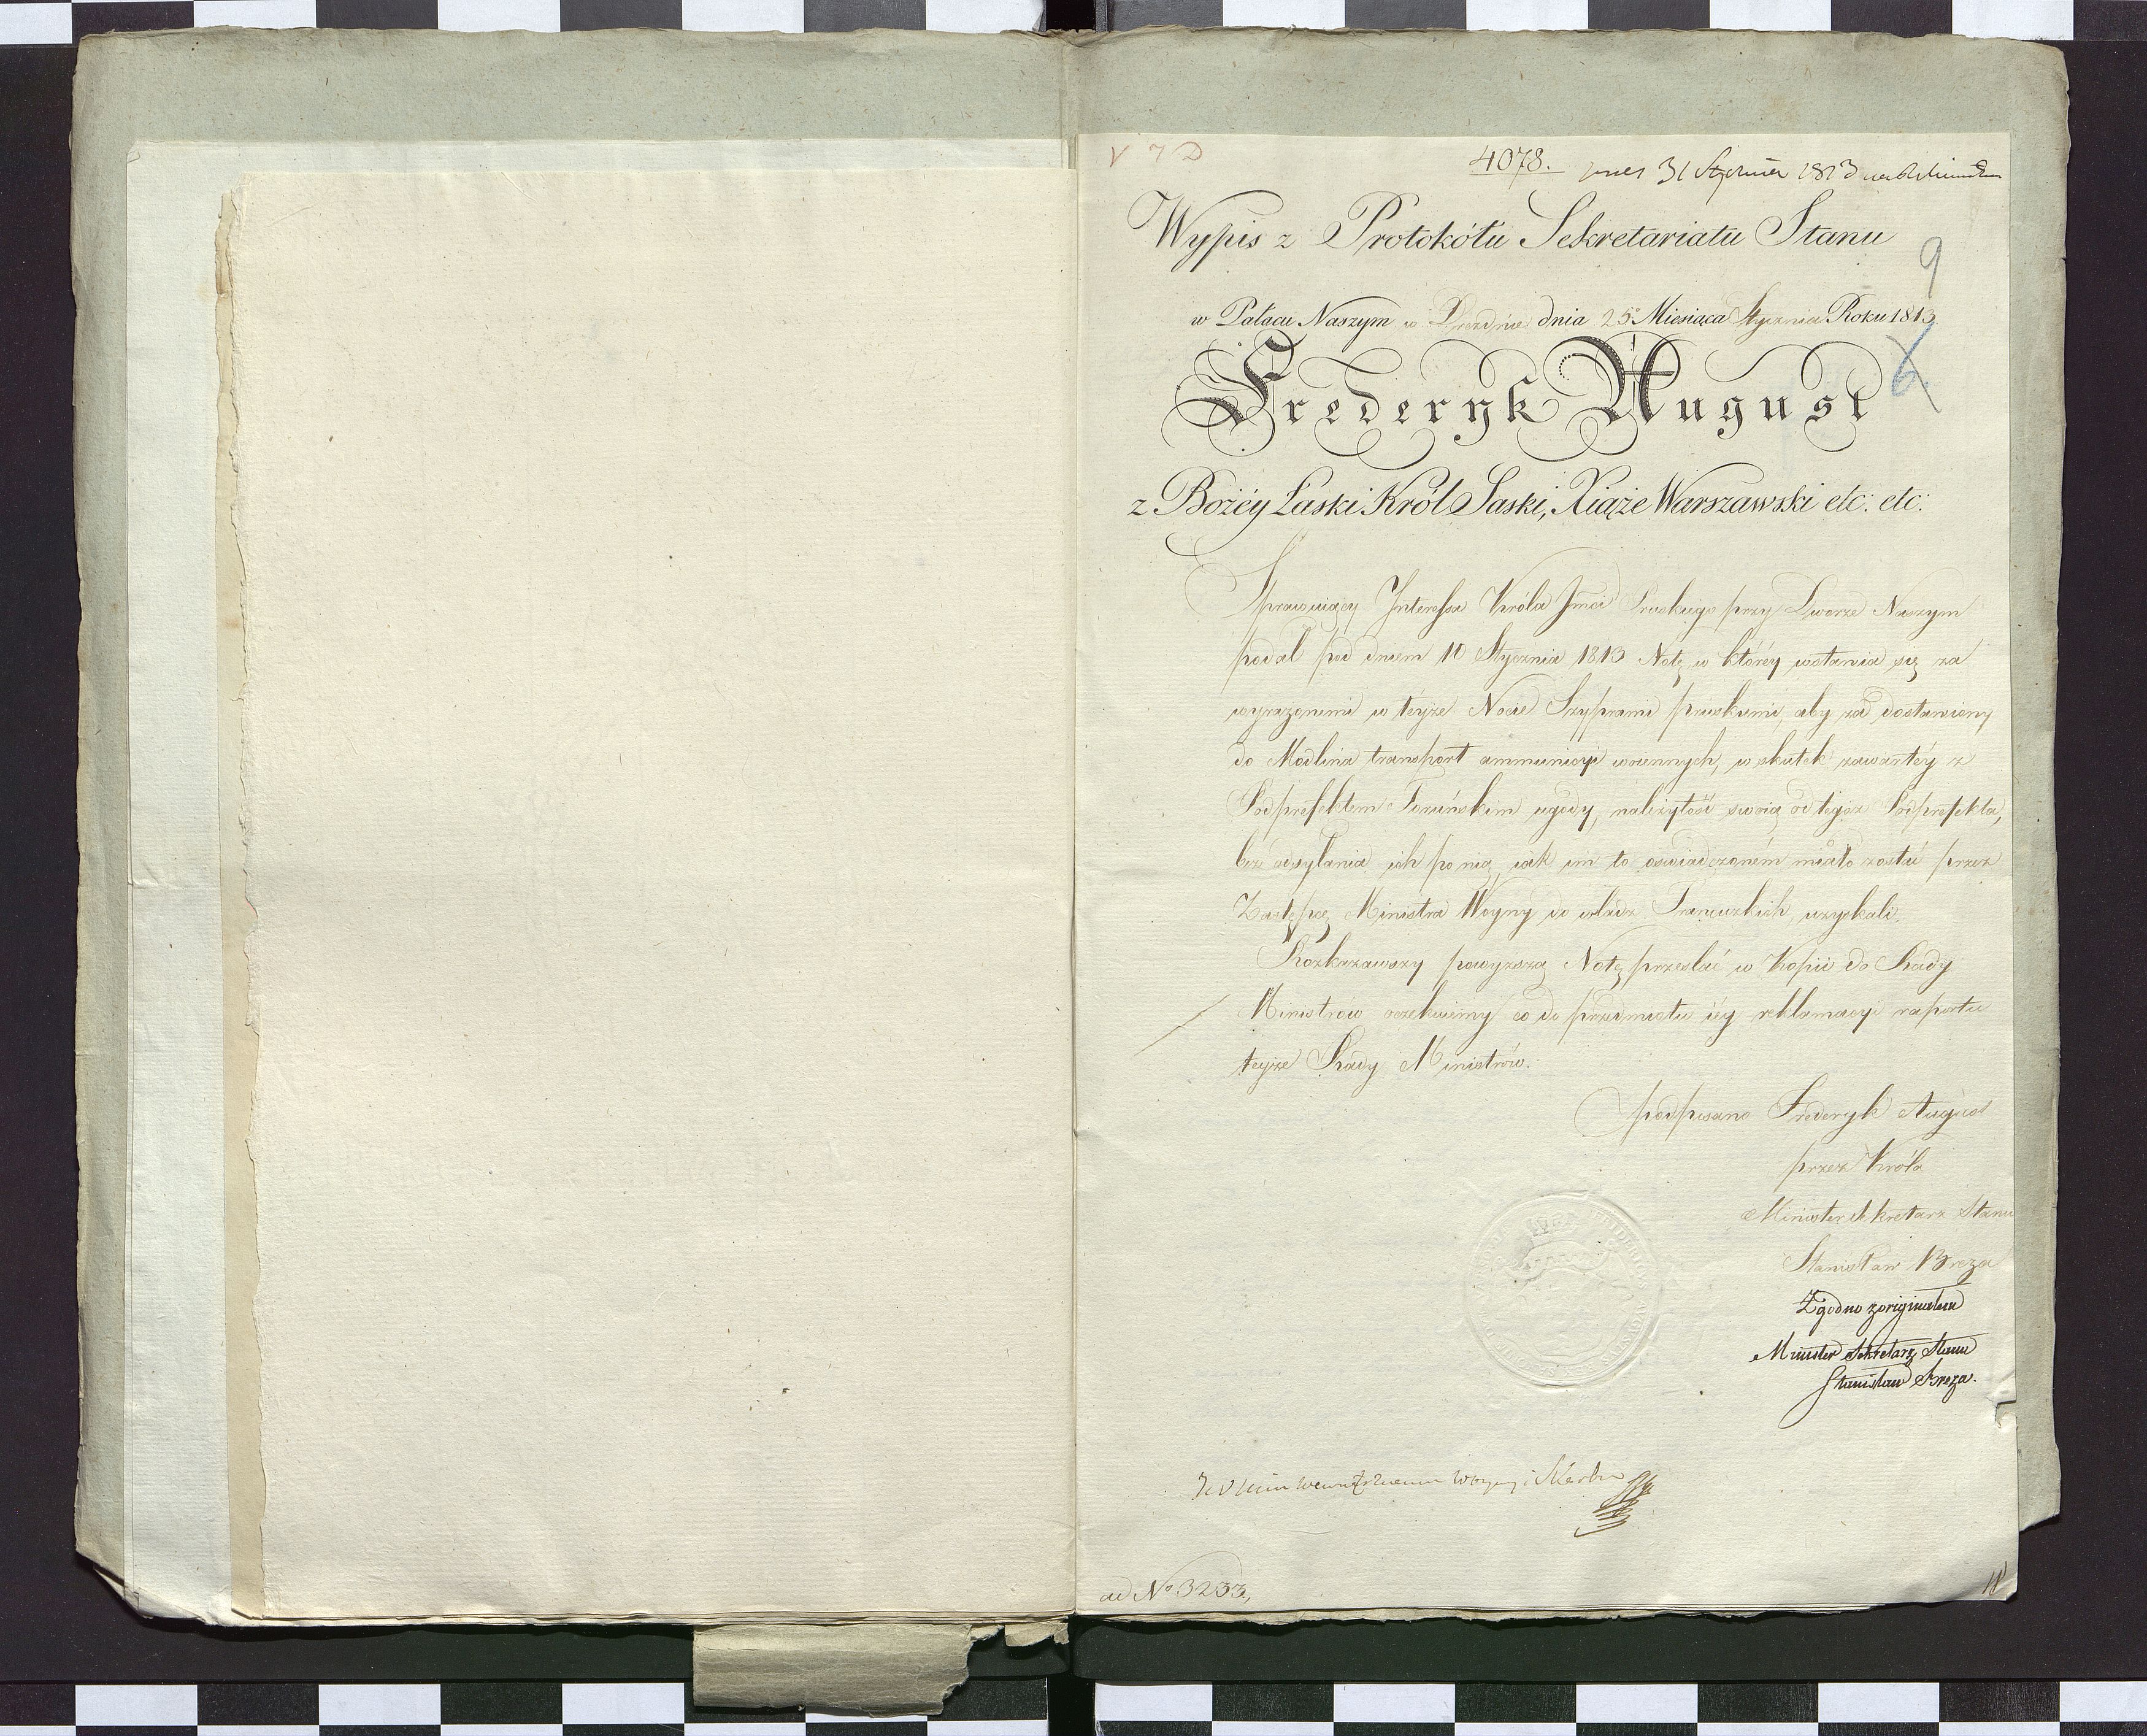 V 7 D
4078. 31 Stycznia 1813
Wypis z Protokółu Sekretariatu Stanu
9
w Pałacu Naszym w Dreznie dnia 25 Miesiąca Stycznia Roku 1813
6
Frederyk August
z Bożéy Łaski Król Saski, Xiąże Warszawski etc: etc:
Sprawuiący Interessa Króla Jmci Pruskiego przy Dworze Naszym
podał pod dniem 10 Stycznia 1813 Notę w któréy wstawia się za
wyrażonemi w téyże Nocie Szyprami pruskiemi, aby za dostawiony
do Modlina transport ammunicyi woiennych, w skutek zawartéy z
Podprefektem Toruńskim ugody, należytość swoią od tegoż Podprefekta,
bez odsyłania ich po nią, iak im to oświadczoném miało zostać przez
Zastępcę Ministra Woyny do władz Francuzkich, uzyskali.
Rozkazawszy powyższą Notę przesłać w Kopii do Rady
Ministrów oczekuiemy co do przedmiotu iéy reklamacyi raportu
teyże Rady Ministrów.
podpisano Frederyk August
przez Króla
Minister Sekretarz Stanu
Stanisław Breza
Zgodno z originałem
Minister Sekretarz Stanu
Stanisław Breza.
Woyny i Skarbu
ad No 3233,